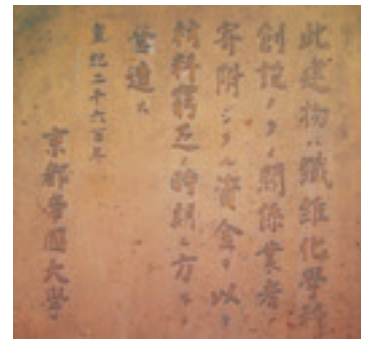 此建物ハ纖維化學科
創設ノタメ關係業者ノ
寄附シタル資金ヲ以テ
材料窮乏ノ時期ニ方リテ
營造ス
皇紀二千六百年
京都帝國大學